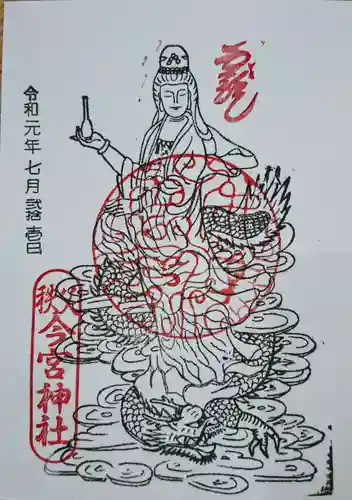 令和元年七月弐拾壱日
秩父
今宮神社